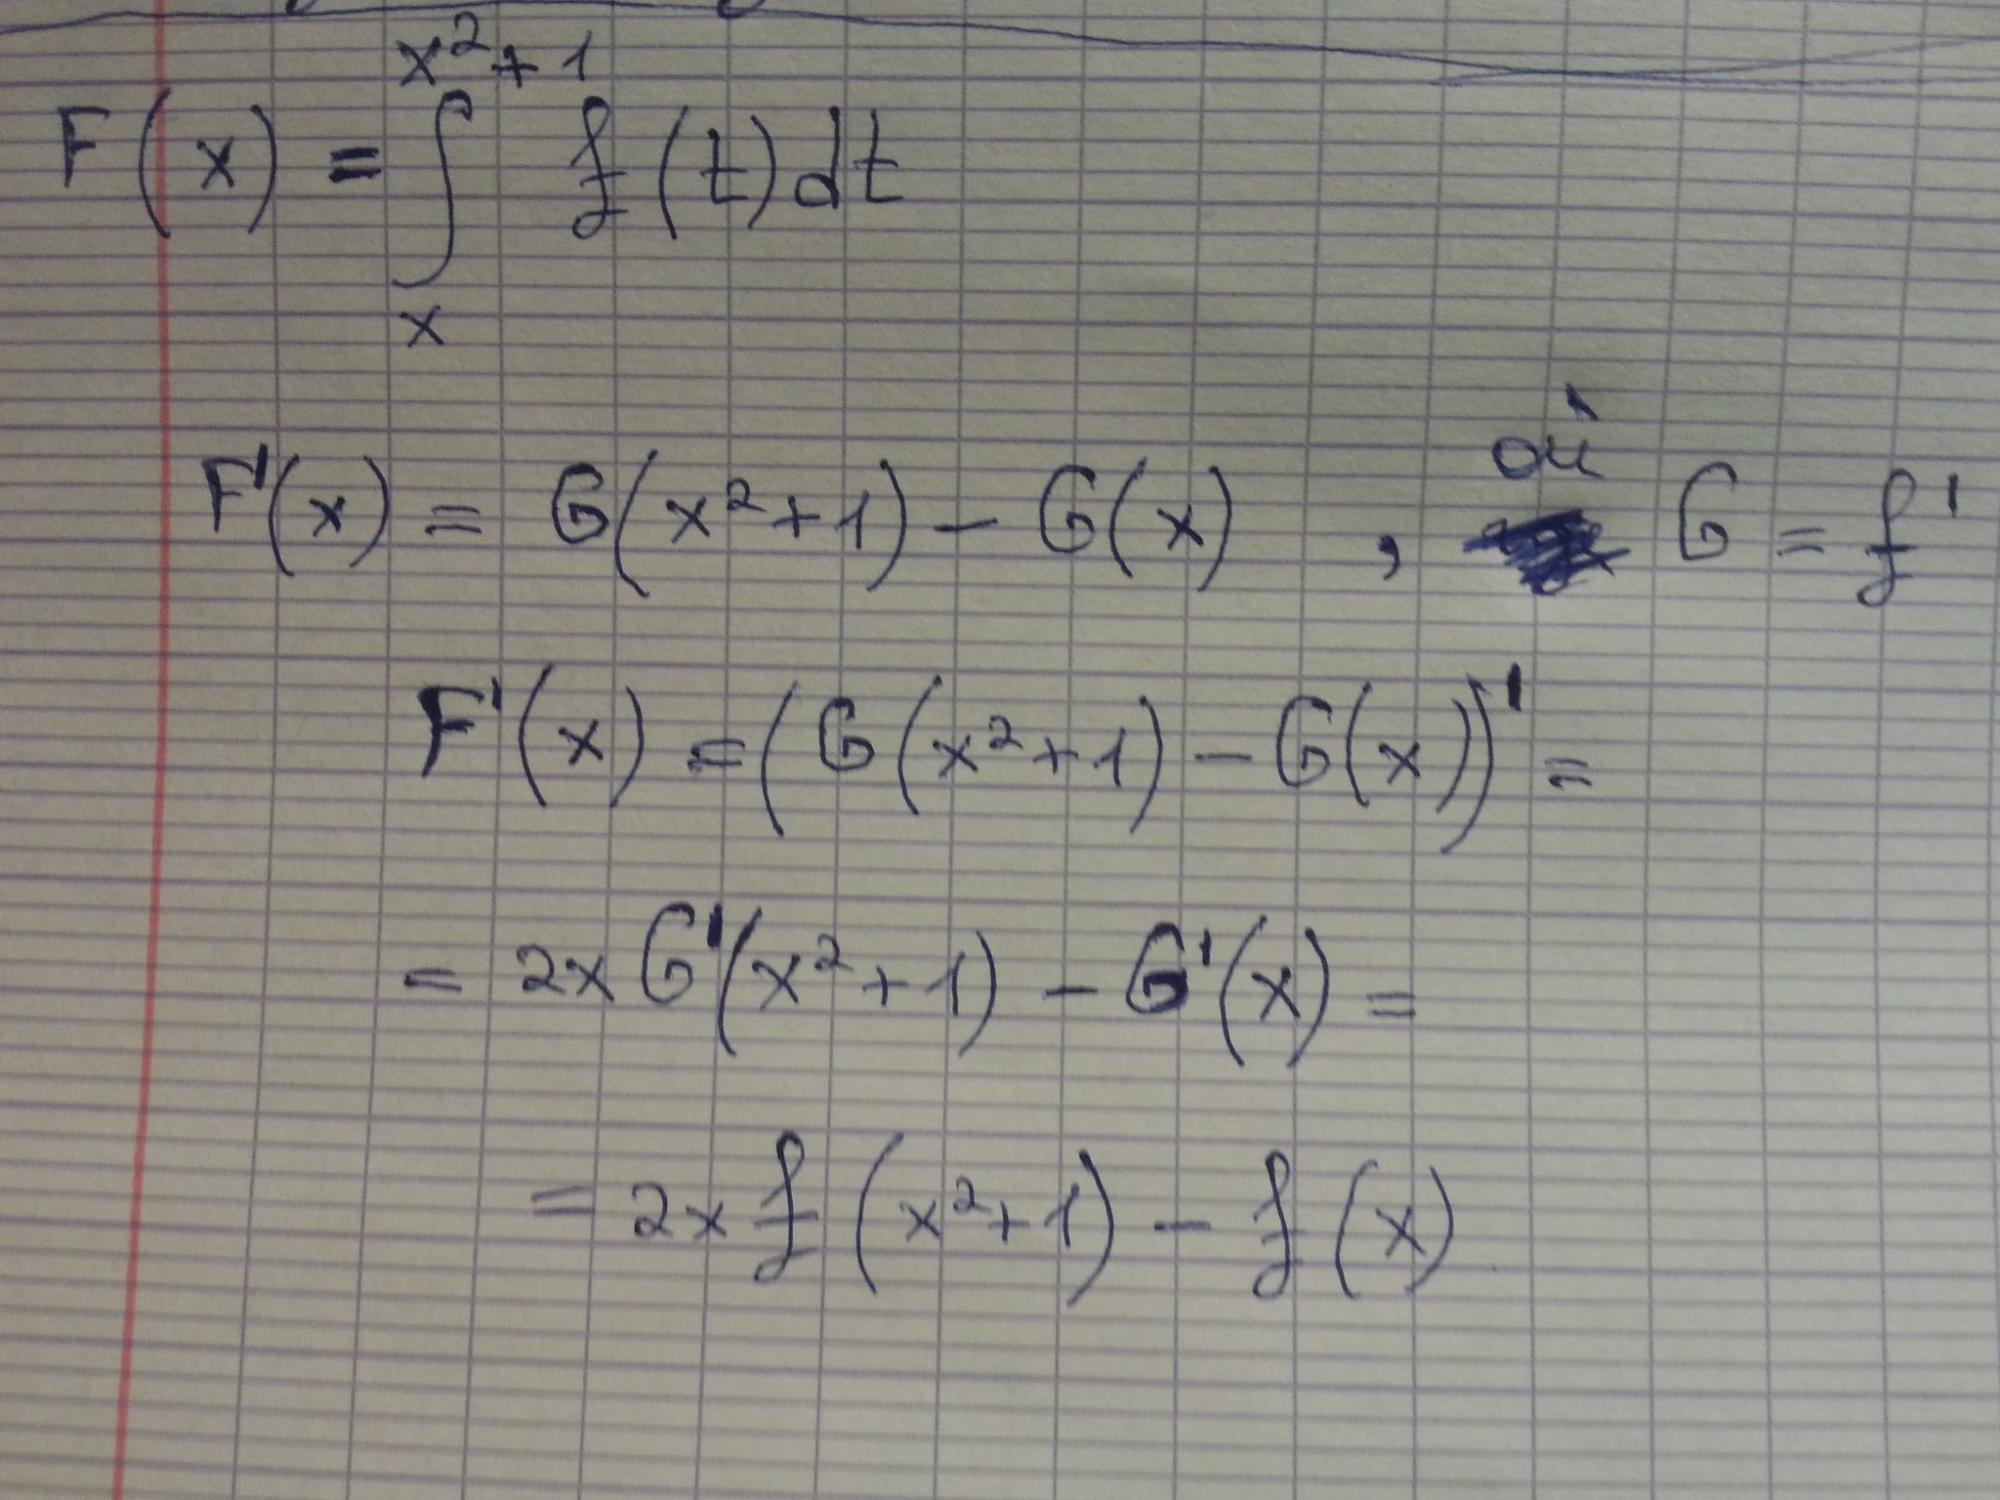 F(x) = ∫ₓ^(x²+1) f(t)dt
F'(x) = G(x²+1) - G(x) , où G = f'
F'(x) = (G(x²+1) - G(x))' =
= 2x G'(x²+1) - G'(x) =
= 2x f(x²+1) - f(x)